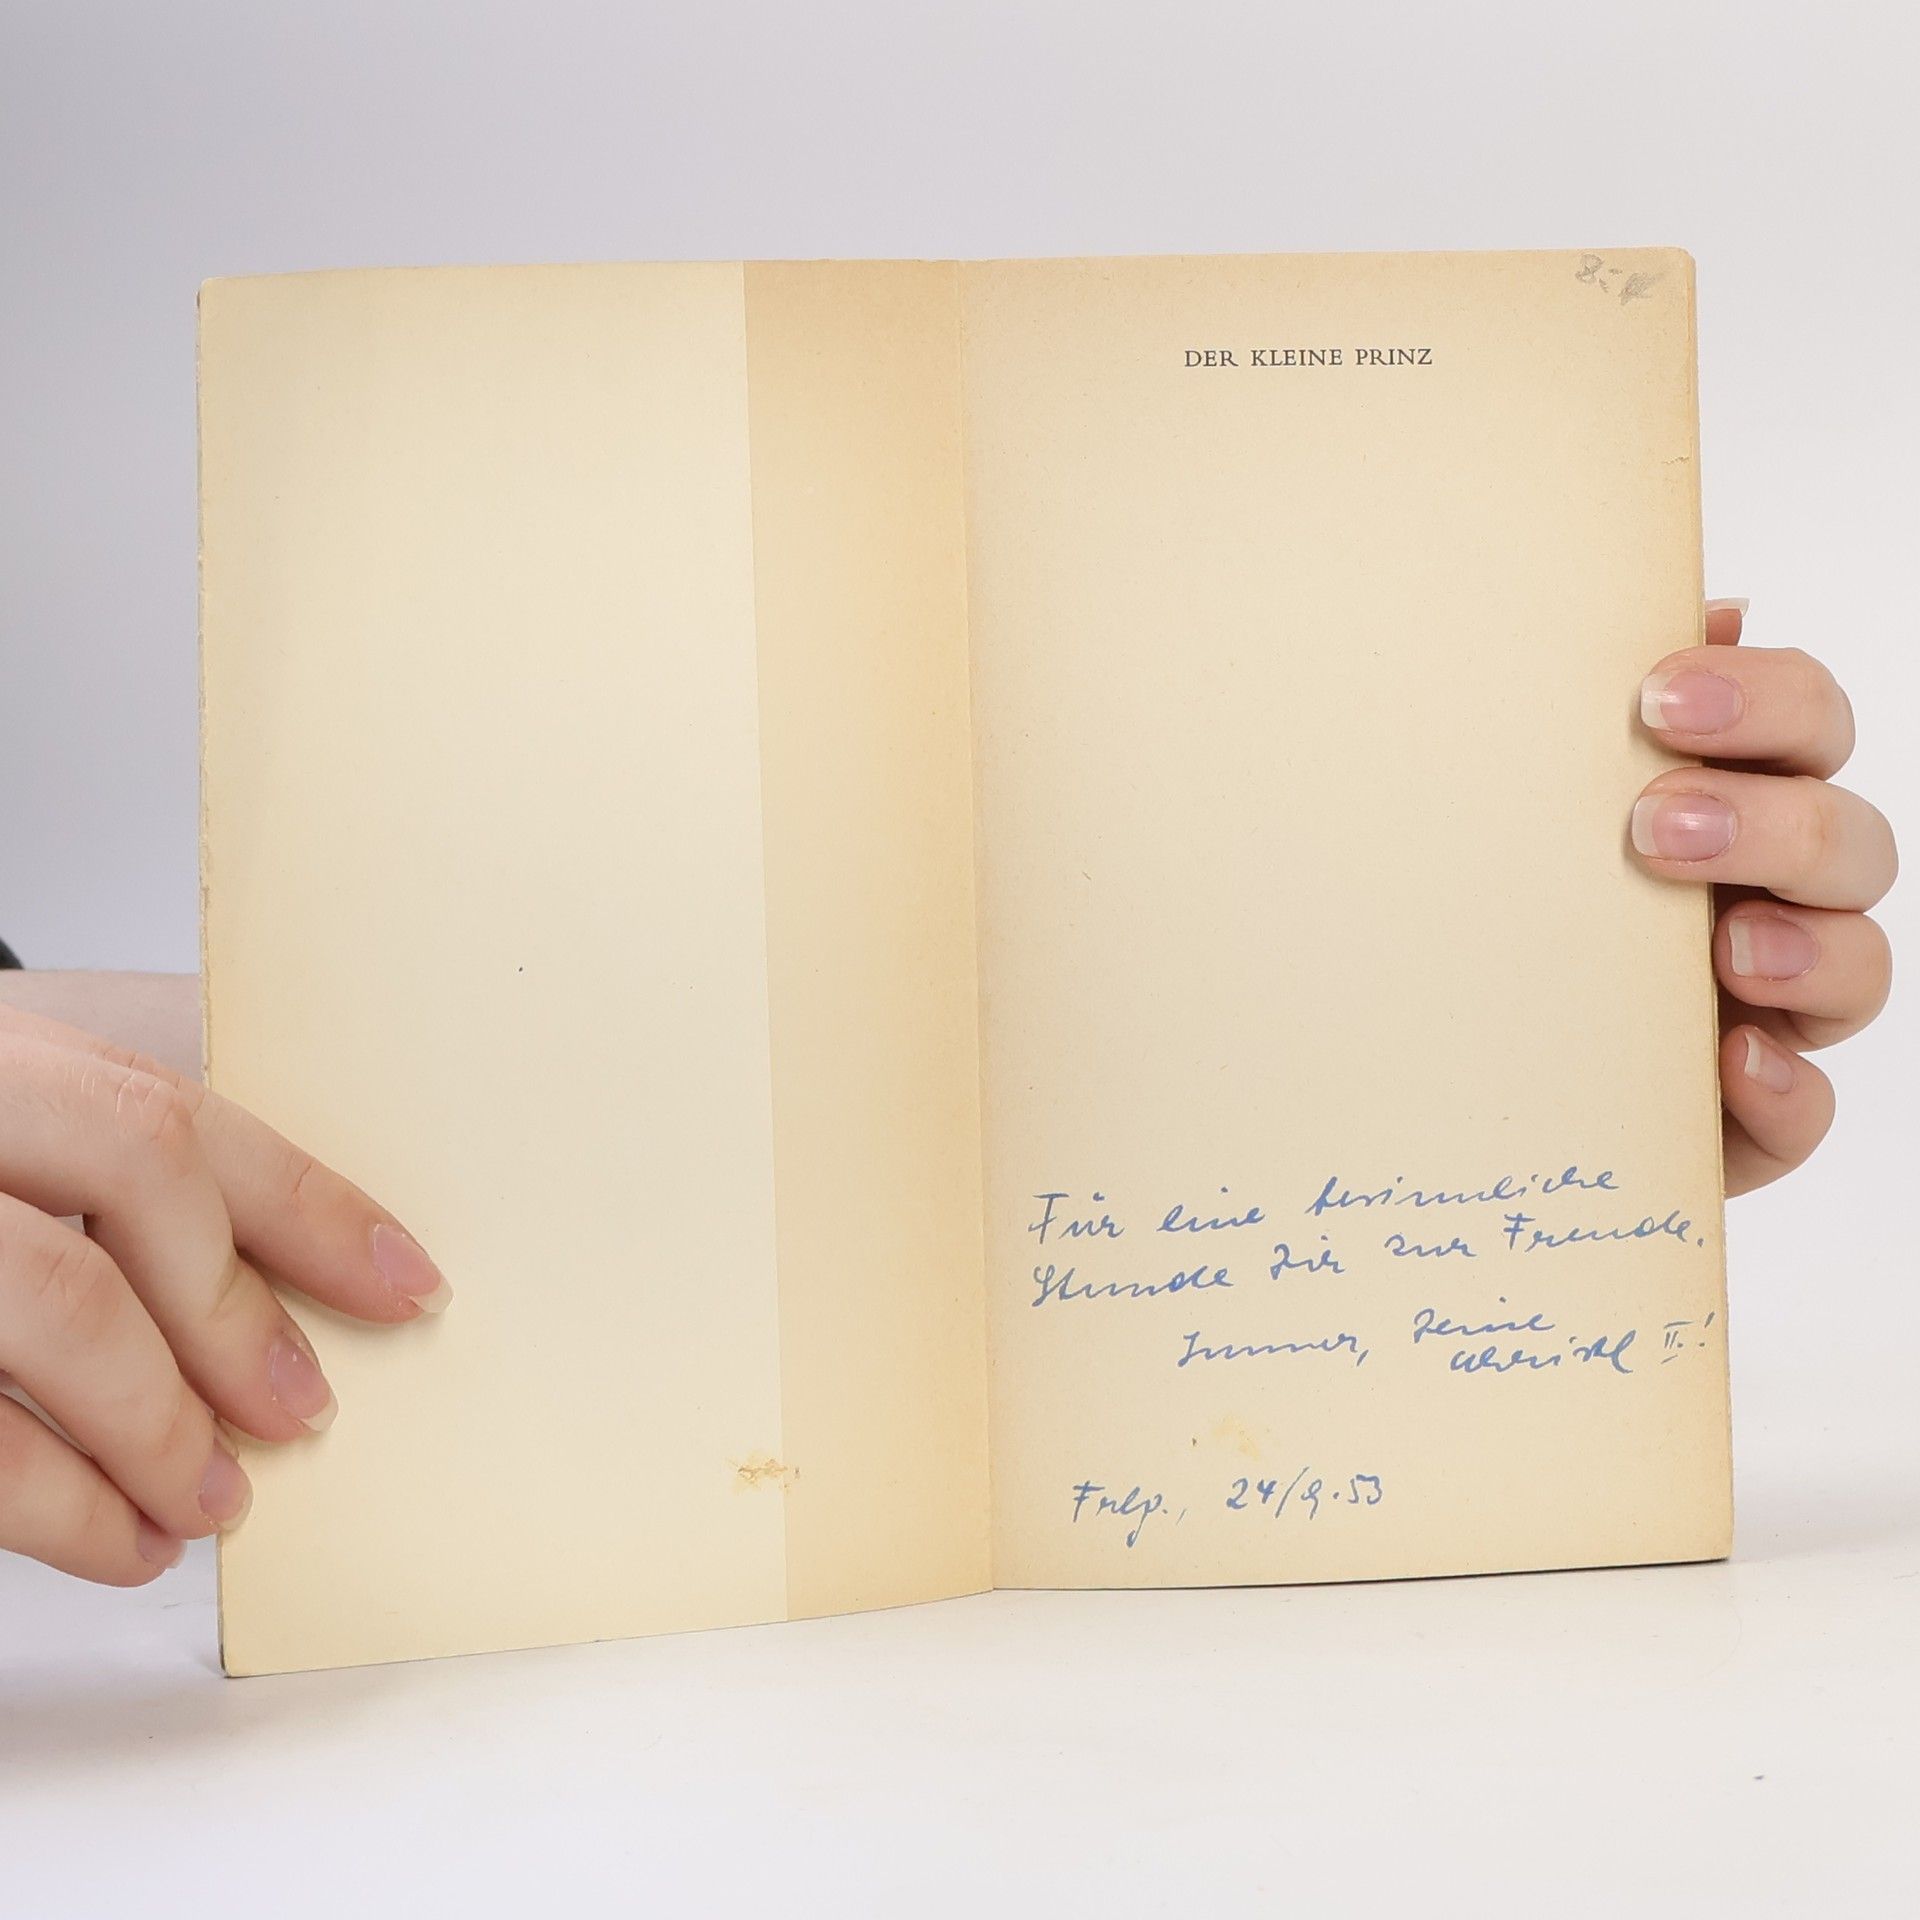 DER KLEINE PRINZ
Für eine besinnliche
Stunde Dir zur Freude.
Immer, Deine
Christl II.!
24/9.53